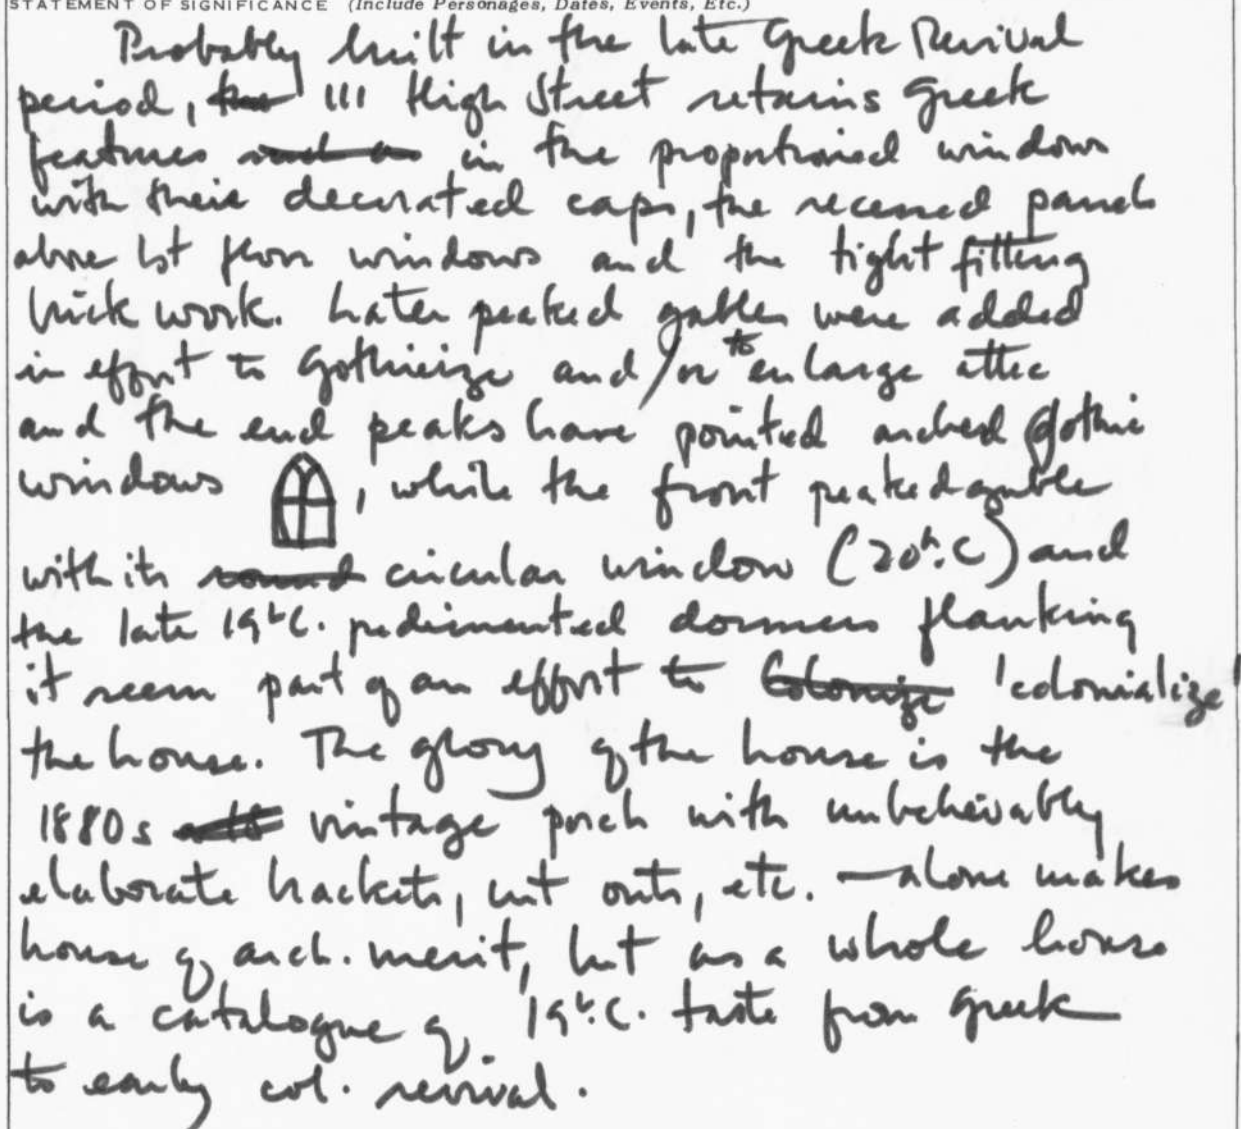 STATEMENT OF SIGNIFICANCE (Include Personages, Dates, Events, Etc.)
Probably built in the late Greek Revival
period, 111 High Street retains Greek
features such as in the proportioned windows
with their decorated caps, the recessed panels
above 1st floor windows and the tight fitting
brick work. Later peaked gables were added
in effort to gothicize and/or to enlarge attic
and the end peaks have pointed arched gothic
windows , while the front peaked gable
with its round circular window (20th.C) and
the late 19th C. pedimented dormers flanking
it seem part of an effort to Colonize 'colonialize'
the house. The glory of the house is the
1880s vintage porch with unbelievably
elaborate brackets, cut outs, etc. — alone makes
house of arch. merit, but as a whole house
is a catalogue of 19th.C. taste from Greek
to early col. revival.